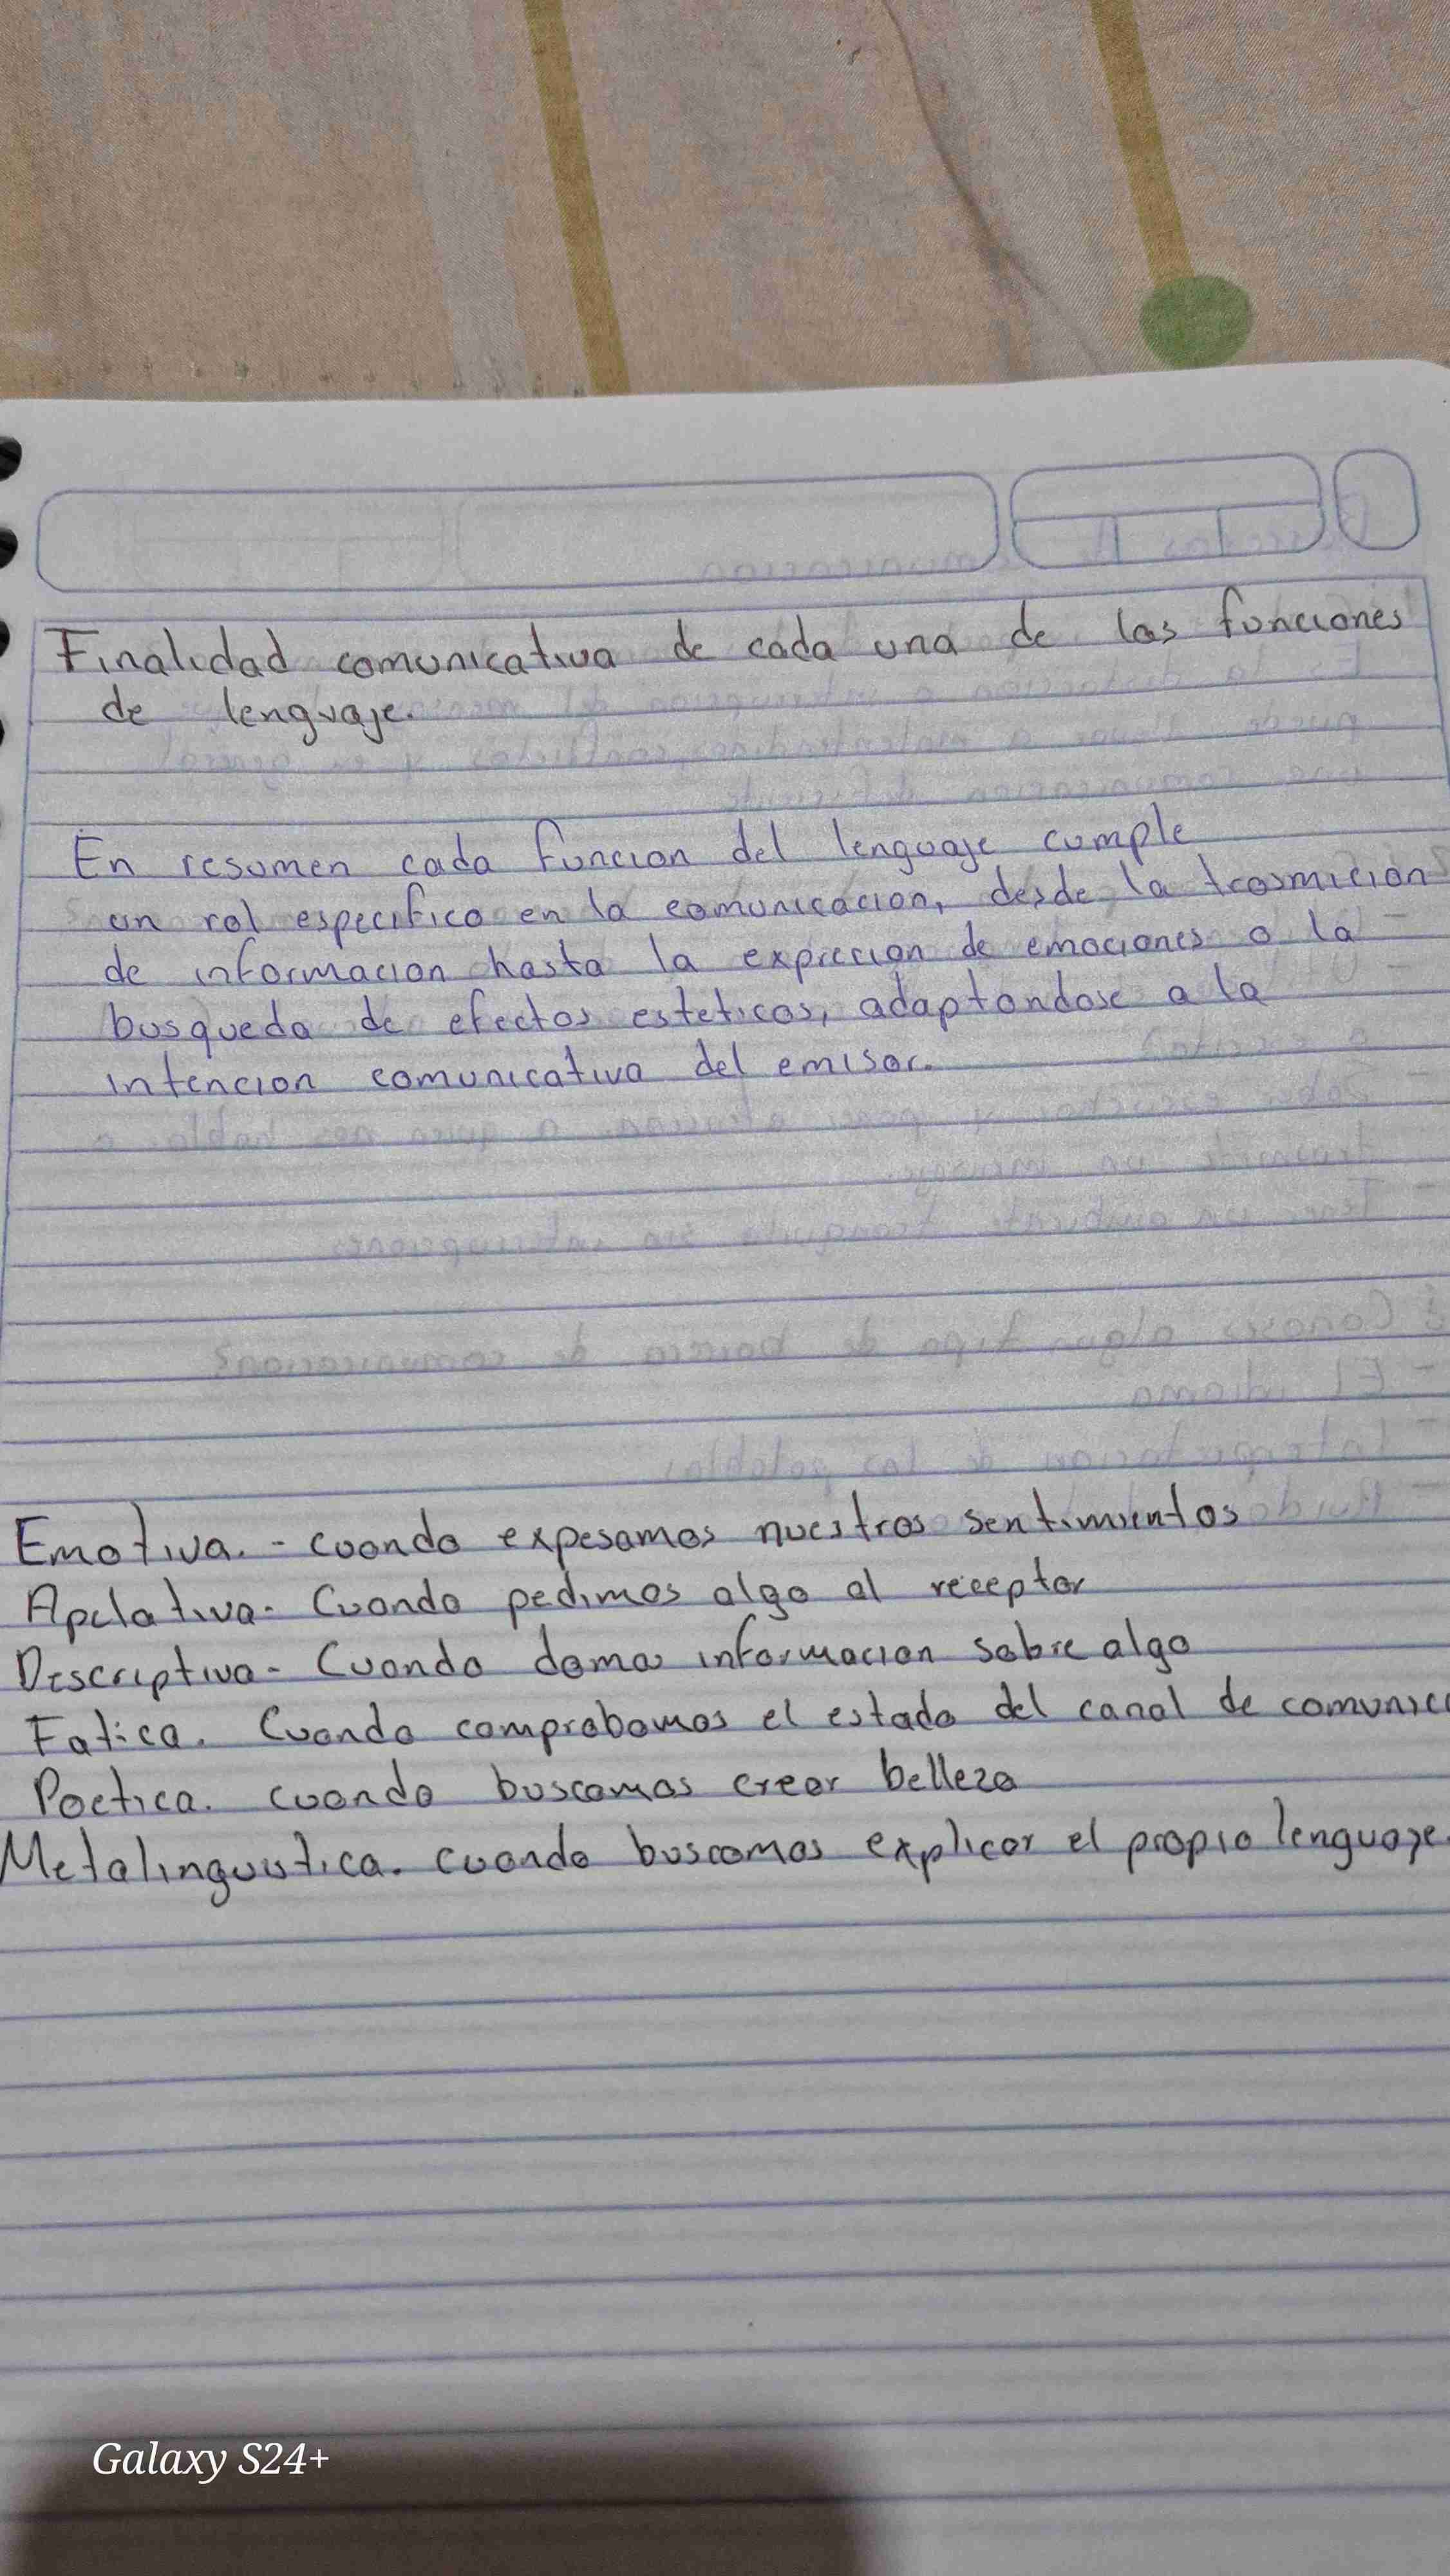 Finalidad comunicativa de cada una de las funciones
de lenguaje.
En resumen cada funcion del lenguaje cumple
un rol especifico en la comunicacion, desde la trasmicion
de informacion hasta la exprecion de emociones o la
busqueda de efectos esteticos, adaptandose a la
intencion comunicativa del emisor.
Emotiva. - cuando expesamos nuestros sentimientos
Apelativa. Cuando pedimos algo al receptor
Descriptiva - Cuando damos informacion sobre algo
Fatica. Cuando comprobamos el estado del canal de comunic
Poetica. cuando buscamos crear belleza
Metalinguistica. cuando buscamos explicar el propio lenguaje.
Galaxy S24+